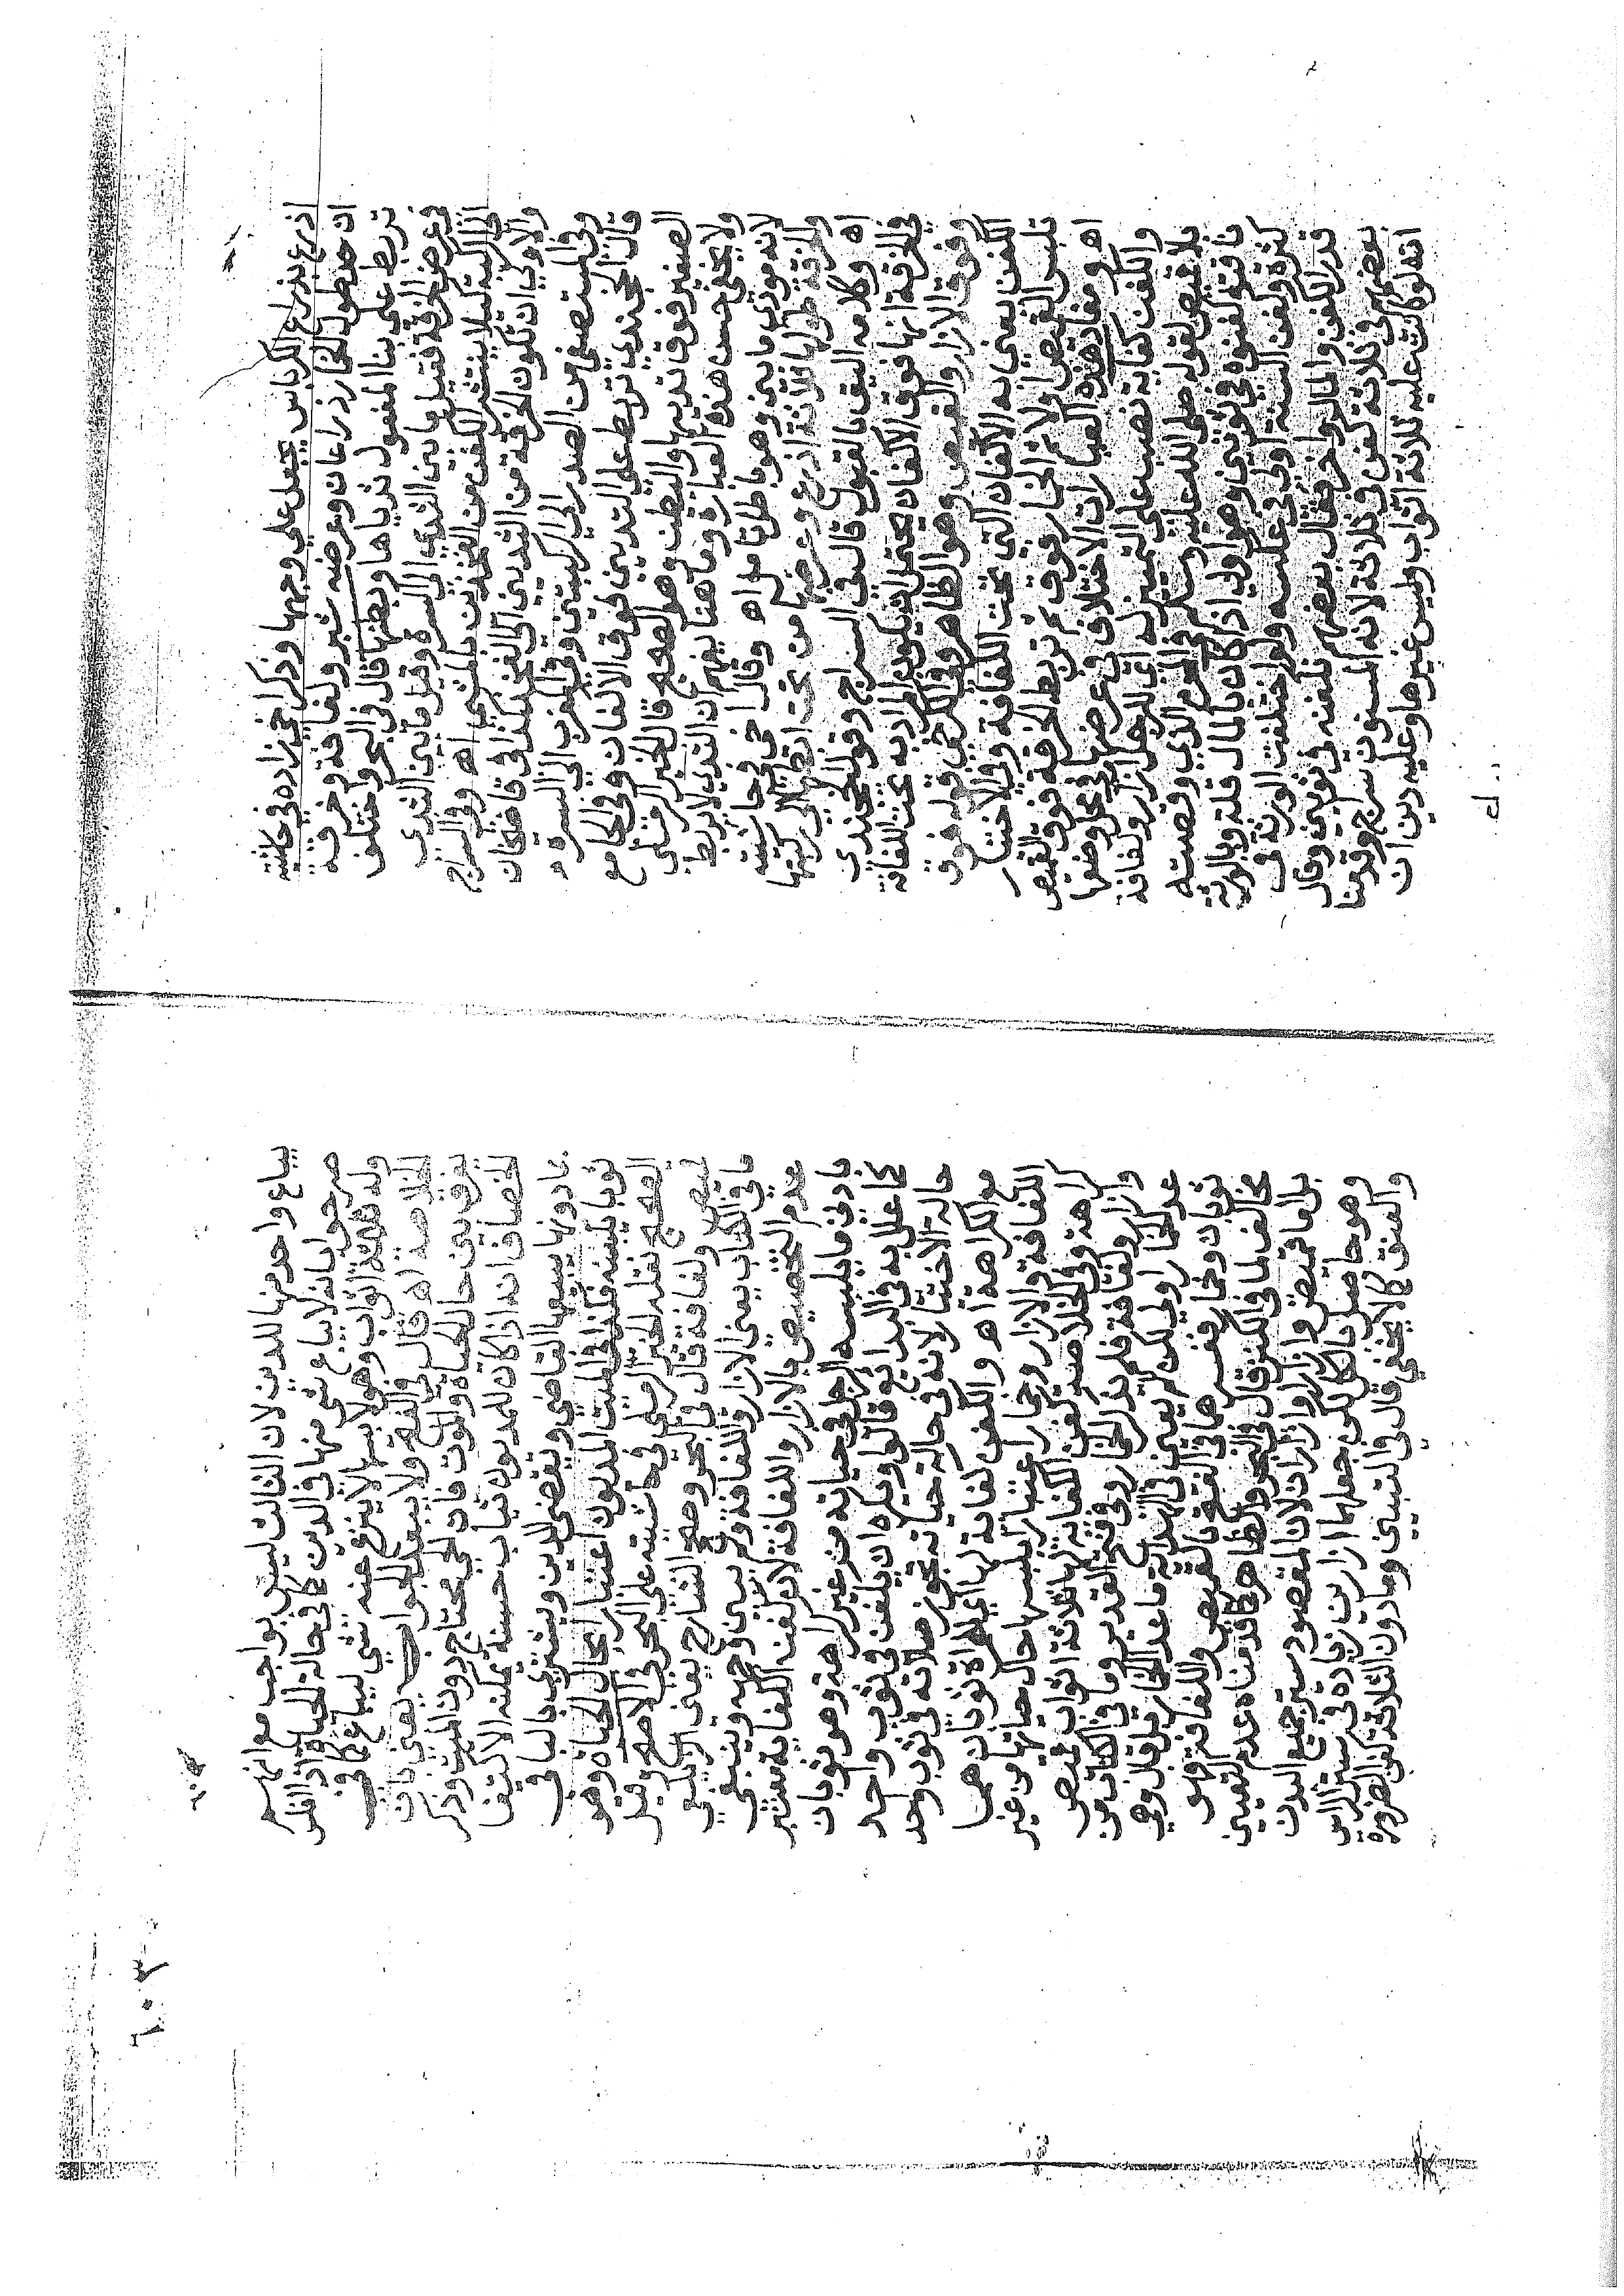 اذرع بذراع الكرباس يجعل على وجهها وذكر اخي زاده في حاشية
ان حد طول الخمار ذراعان وعرضه شبر ولفافة وخرقة
تربط على بنا المفعول ثدياها وبطنها قال في البحر واختلف
في عرض الخرقة فقيل ما بين الثدي الى السرة وقيل ما بين الثدي
الى الركبة كيلا ينتشر الكفن من الفخذين بالمشي اه وفي السراج
والاولى ان تكون الخرقة من الثديين الى الفخذ كذا في قاضيخان
وفي المستصفى من الصدر الى الركبتين وفي المغرب الى السرة و
قال الخجندي تربط على الثديين فوق الاكفان وفي الجامع
الصغير فوق ثدييها والبطن وهو الصحيح قال الخير الرملي
ولا يخفى حسن هذه العبارة وما هنا يفهم ان الثدي لا يربط
لانه ما بين وهو باطلا تامل اه وقال اخي وحاشية
والخرقة طولها ثلاثة اذرع وعرضها من تحت ابطها الى ركبتها
اه وكلامه اليق بالقبول قال في السراج وقول الخجندي
في الخرقة انها فوق الاكفان يحتمل ان يكون المراد به تحت اللفافة
وفوق الازار والقميص وهو الظاهر وفي الكرخي قوله فوق
الكفن يعني به الاكفان التي تحت اللفافة وفي الاختيار
تلبس القميص اولا ثم الخمار فوقه ثم تربط الخرقة فوق القميص
اه ومفاد هذه العبارات الاختلاف في عرضها وفي محل وضعها
والكفن كفاية نصب على التمييز له اي للرجل ازار ولفافة
بلا قميص لقوله صلى الله عليه وسلم في المحرم الذي وقصته
ناقته كفنوه في ثوبين وهو اولى اذا كان بالمال قلة وبالورثة
كثرة وكفن السنة اولى في عكسه ولو اختلفت الورثة في
قدر الكفن والمال واحد فقال بعضهم نكفنه في ثوبين وقال
بعضهم في ثلاثة كفن في ثلاثة لانه المسنون سراج وقدمنا
انه لو كانت عليه ثلاثة اثواب وليس غيرها وعليه دين ان
١٠٣
يباع واحد منها للدين لان الثالث ليس بواجب مع انهم
صرحوا بانه لا يباع شي منها في الدين كما في حالة الحياة اذا افلس
وله ثلاثة اثواب وهو لابسها لا ينزع عنه شي ليباع كما في
الخلاصة اه قال في الفتح ولا يبعد الجواب يعني بان
يفرق بين حال الحياة والموت فان الحي محتاج دون الميت وذكر
الخصاف انه اذا كان للمديون ثياب حسنة يمكنه الاكتفا
بما دونها يبيعها القاضي ويقضي الدين ويشتري بالباقي
ثوبا يلبسه فكذا في الميت المديون اعتبارا بحال الحياة وهو
الصحيح نقله الخير الرملي في حاشيته على البحر في الاصح وقيل
قميص ولفافة قال في البحر وصحح الشارح يعني الزيلعي
ما في الكتاب يعني الازار واللفافة ولم يبين وجهه وينبغي
عدم التخصيص بالازار واللفافة لان كفن الكفاية معتبر
بادنى ما يلبسه الرجل في حياته من غير كراهة وهو ثوبان
كما علل به في البدايع قالوا ويكره ان يكفن في ثوب واحد
حالة الاختيار لانه في حالة حياته تجوز صلاته في ثوب واحد
مع الكراهة اه والكفن كفاية لها اي للمراة ثوبان هما
اللفافة والازار وخمار اعتبارا بلبسها حال حياتها من غير
كراهة وفي الخلاصة كفن الكفاية لها ثلاثة اثواب قميص
وازار ولفافة فلم يذكر الخمار وفي فتح القدير وما في الكتاب من
عد الخمار اولى لكن لم يعين في الهداية ما عدا الخمار بل قال وهي
ثوبان وخمار ففسرها في الفتح بالقميص واللفافة فهو
مخالف لما في الكنز قال في البحر والظاهر كما قدمناه عدم التعيين
بل اما قميص وازار او ازاران لان المقصود ستر جميع البدن
وهو حاصل بالكل لكن جعلهما ازارين زيادة في ستر الراس
والعنق كما لا يخفى قال في التبيين وما دون الثلاثة كفن الضرورة